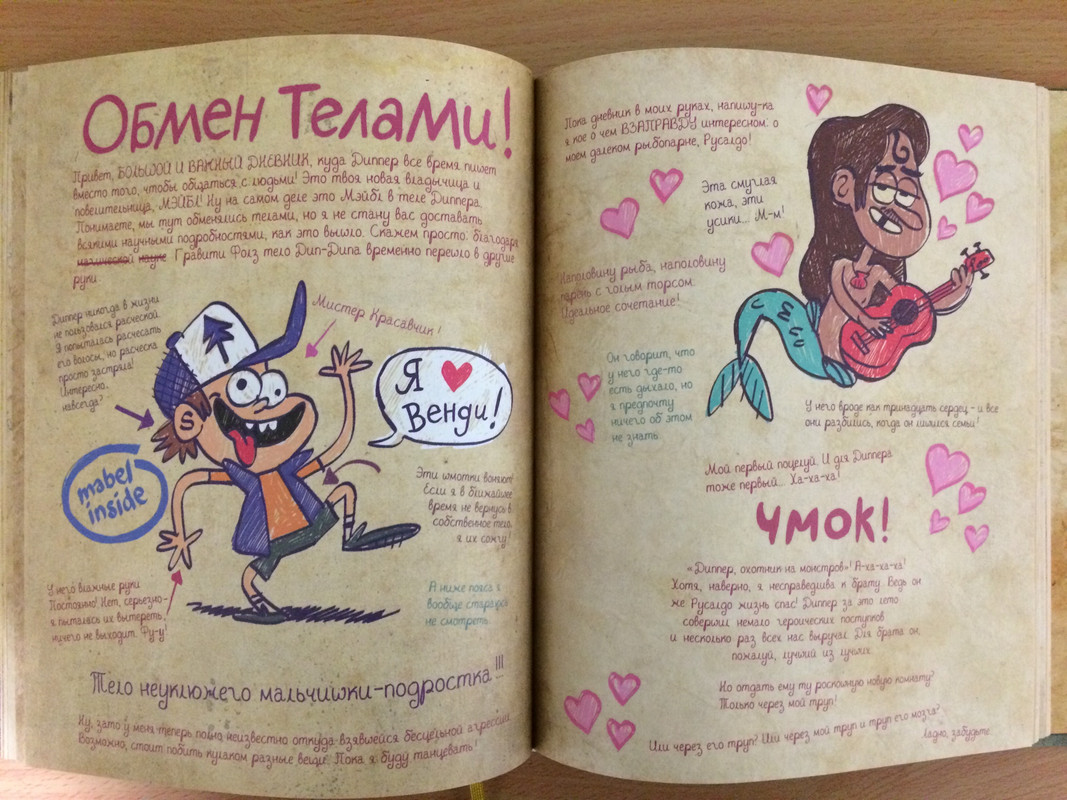 Обмен Телами!
Привет, БОЛЬШОЙ И ВАЖНЫЙ ДНЕВНИК, куда Диппер все время пишет
вместо того, чтобы общаться с людьми! Это твоя новая владычица и
повелительница, МЭЙБЛ! Ну на самом деле это Мэйбл в теле Диппера.
Понимаете, мы тут обменялись телами, но я не стану вас доставать
всякими научными подробностями, как это вышло. Скажем просто: благодаря
магической науке Гравити Фолз тело Дип-Дипа временно перешло в другие
руки.
Диппер никогда в жизни
не пользовался расческой.
Я попыталась расчесать
его волосы, но расческа
просто застряла!
Интересно,
навсегда?
Мистер Красавчик!
Я ♥
Венди!
S
mabel
inside
Эти шмотки воняют!
Если я в ближайшее
время не вернусь в
собственное тело,
я их сожгу!
У него влажные руки.
Постоянно! Нет, серьезно -
я пыталась их вытереть,
ничего не выходит. Фу-у!
А ниже пояса я
вообще стараюсь
не смотреть.
Тело неуклюжего мальчишки-подростка!!!
Ну, зато у меня теперь полно неизвестно откуда взявшейся бесцельной агрессии.
Возможно, стоит побить кулаком разные вещи. Пока я буду танцевать!
Пока дневник в моих руках, напишу-ка
я кое о чем ВЗАПРАВДУ интересном: о
моем далеком рыбопарне, Русалдо!
Эта смуглая
кожа, эти
усики... М-м!
Наполовину рыба, наполовину
парень с голым торсом.
Идеальное сочетание!
Он говорит, что
у него где-то
есть дыхало, но
я предпочту
ничего об этом
не знать.
У него вроде как тринадцать сердец - и все
они разбились, когда он лишился семьи!
Мой первый поцелуй. И для Диппера
тоже первый... Ха-ха-ха!
ЧМОК!
«Диппер, охотник на монстров»! А-ха-ха-ха!
Хотя, наверно, я несправедлива к брату. Ведь он
же Русалдо жизнь спас! Диппер за это лето
совершил немало героических поступков
и несколько раз всех нас выручал. Для брата он,
пожалуй, лучший из лучших.
Но отдать ему ту роскошную новую комнату?
Только через мой труп!
Или через его труп? Или через мой труп и труп его мозга?
Ладно, забудьте.